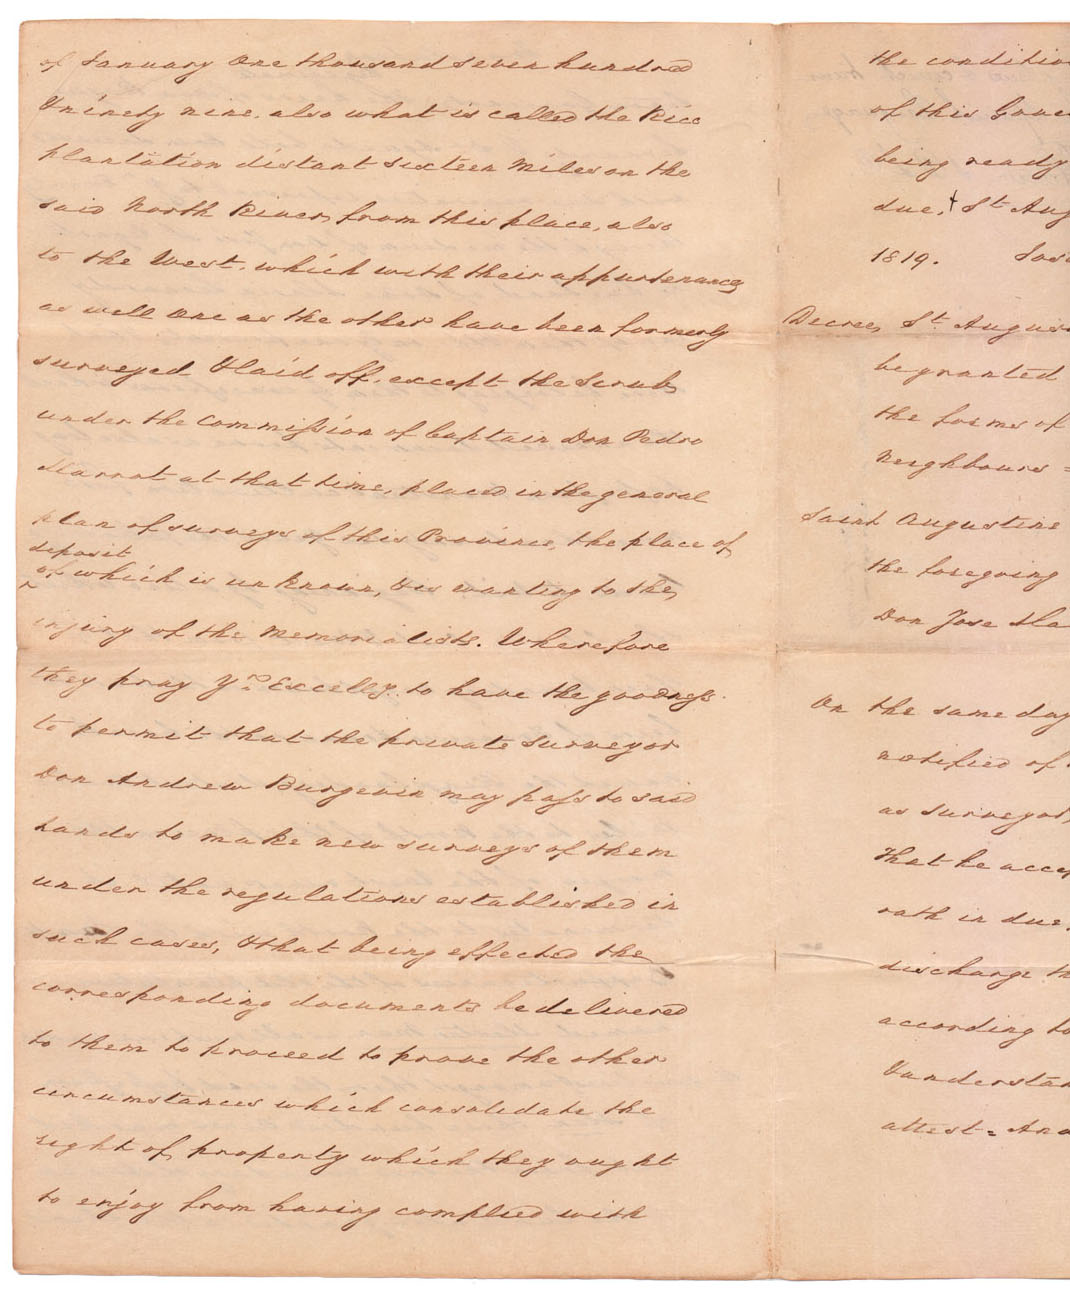 of January One thousand seven hundred
& ninety nine, also what is called the Rice
plantation distant sixteen Miles on the
said North River, from this place, also
to the West, which with their appurtenances
as well one as the other have been formerly
surveyed & laid off, except the Scrub,
under the commission of Captain Don Pedro
Marrot at that time, placed in the general
plan of surveys of this Province, the place of
deposit
of which is unknown, & is wanting to the
injury of the Memorialists. Wherefore
they pray Yr. Excelly. to have the goodness
to permit that the private surveyor
Don Andrew Burgevin may pass to said
lands to make new surveys of them
under the regulations established in
such cases, & that being effected the
corresponding documents be delivered
to them to proceed to prove the other
circumstances which consolidate the
right of property which they ought
to enjoy from having complied with
the conditio
of this Gove
being ready
due, + St. Aug
1819.
Decree, St. Augus
be granted
the forms of
Neighbours =
Saint Augustine
the foregoing
Don Jose
On the same day
notified of
as surveyor
that he acce
oath in due
discharge th
according to
& understan
attest = An